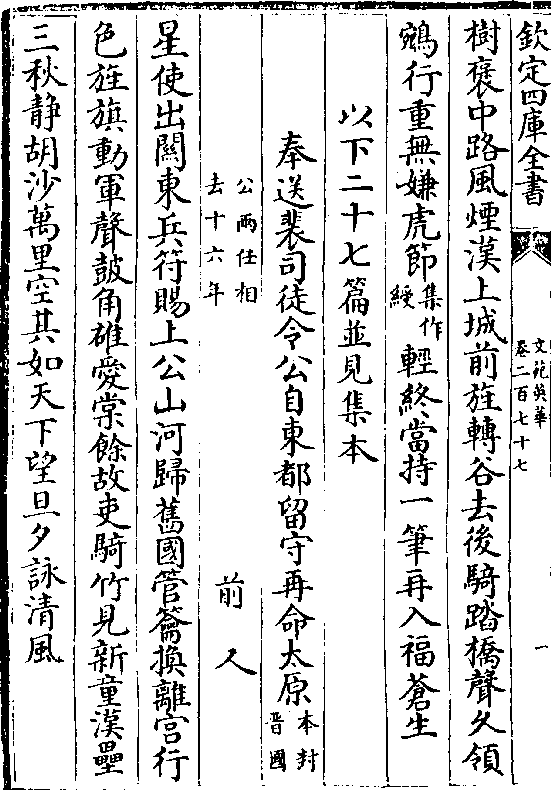 欽定四庫全書
文苑英華
卷二百七十七
一
樹褒中路風煙漢上城前旌轉谷去後騎踏橋聲久領
鵷行重無嫌虎節集作綬輕終當持一筆再入福蒼生
以下二十七篇並見集本
奉送裴司徒令公自東都留守再命太原本封晉國
公兩任相去十六年
前人
星使出關東兵符賜上公山河歸舊國管籥換離宮行
色旌旗動軍聲鼓角雄愛棠餘故吏騎竹見新童漢壘
三秋静胡沙萬里空其如天下望旦夕詠清風